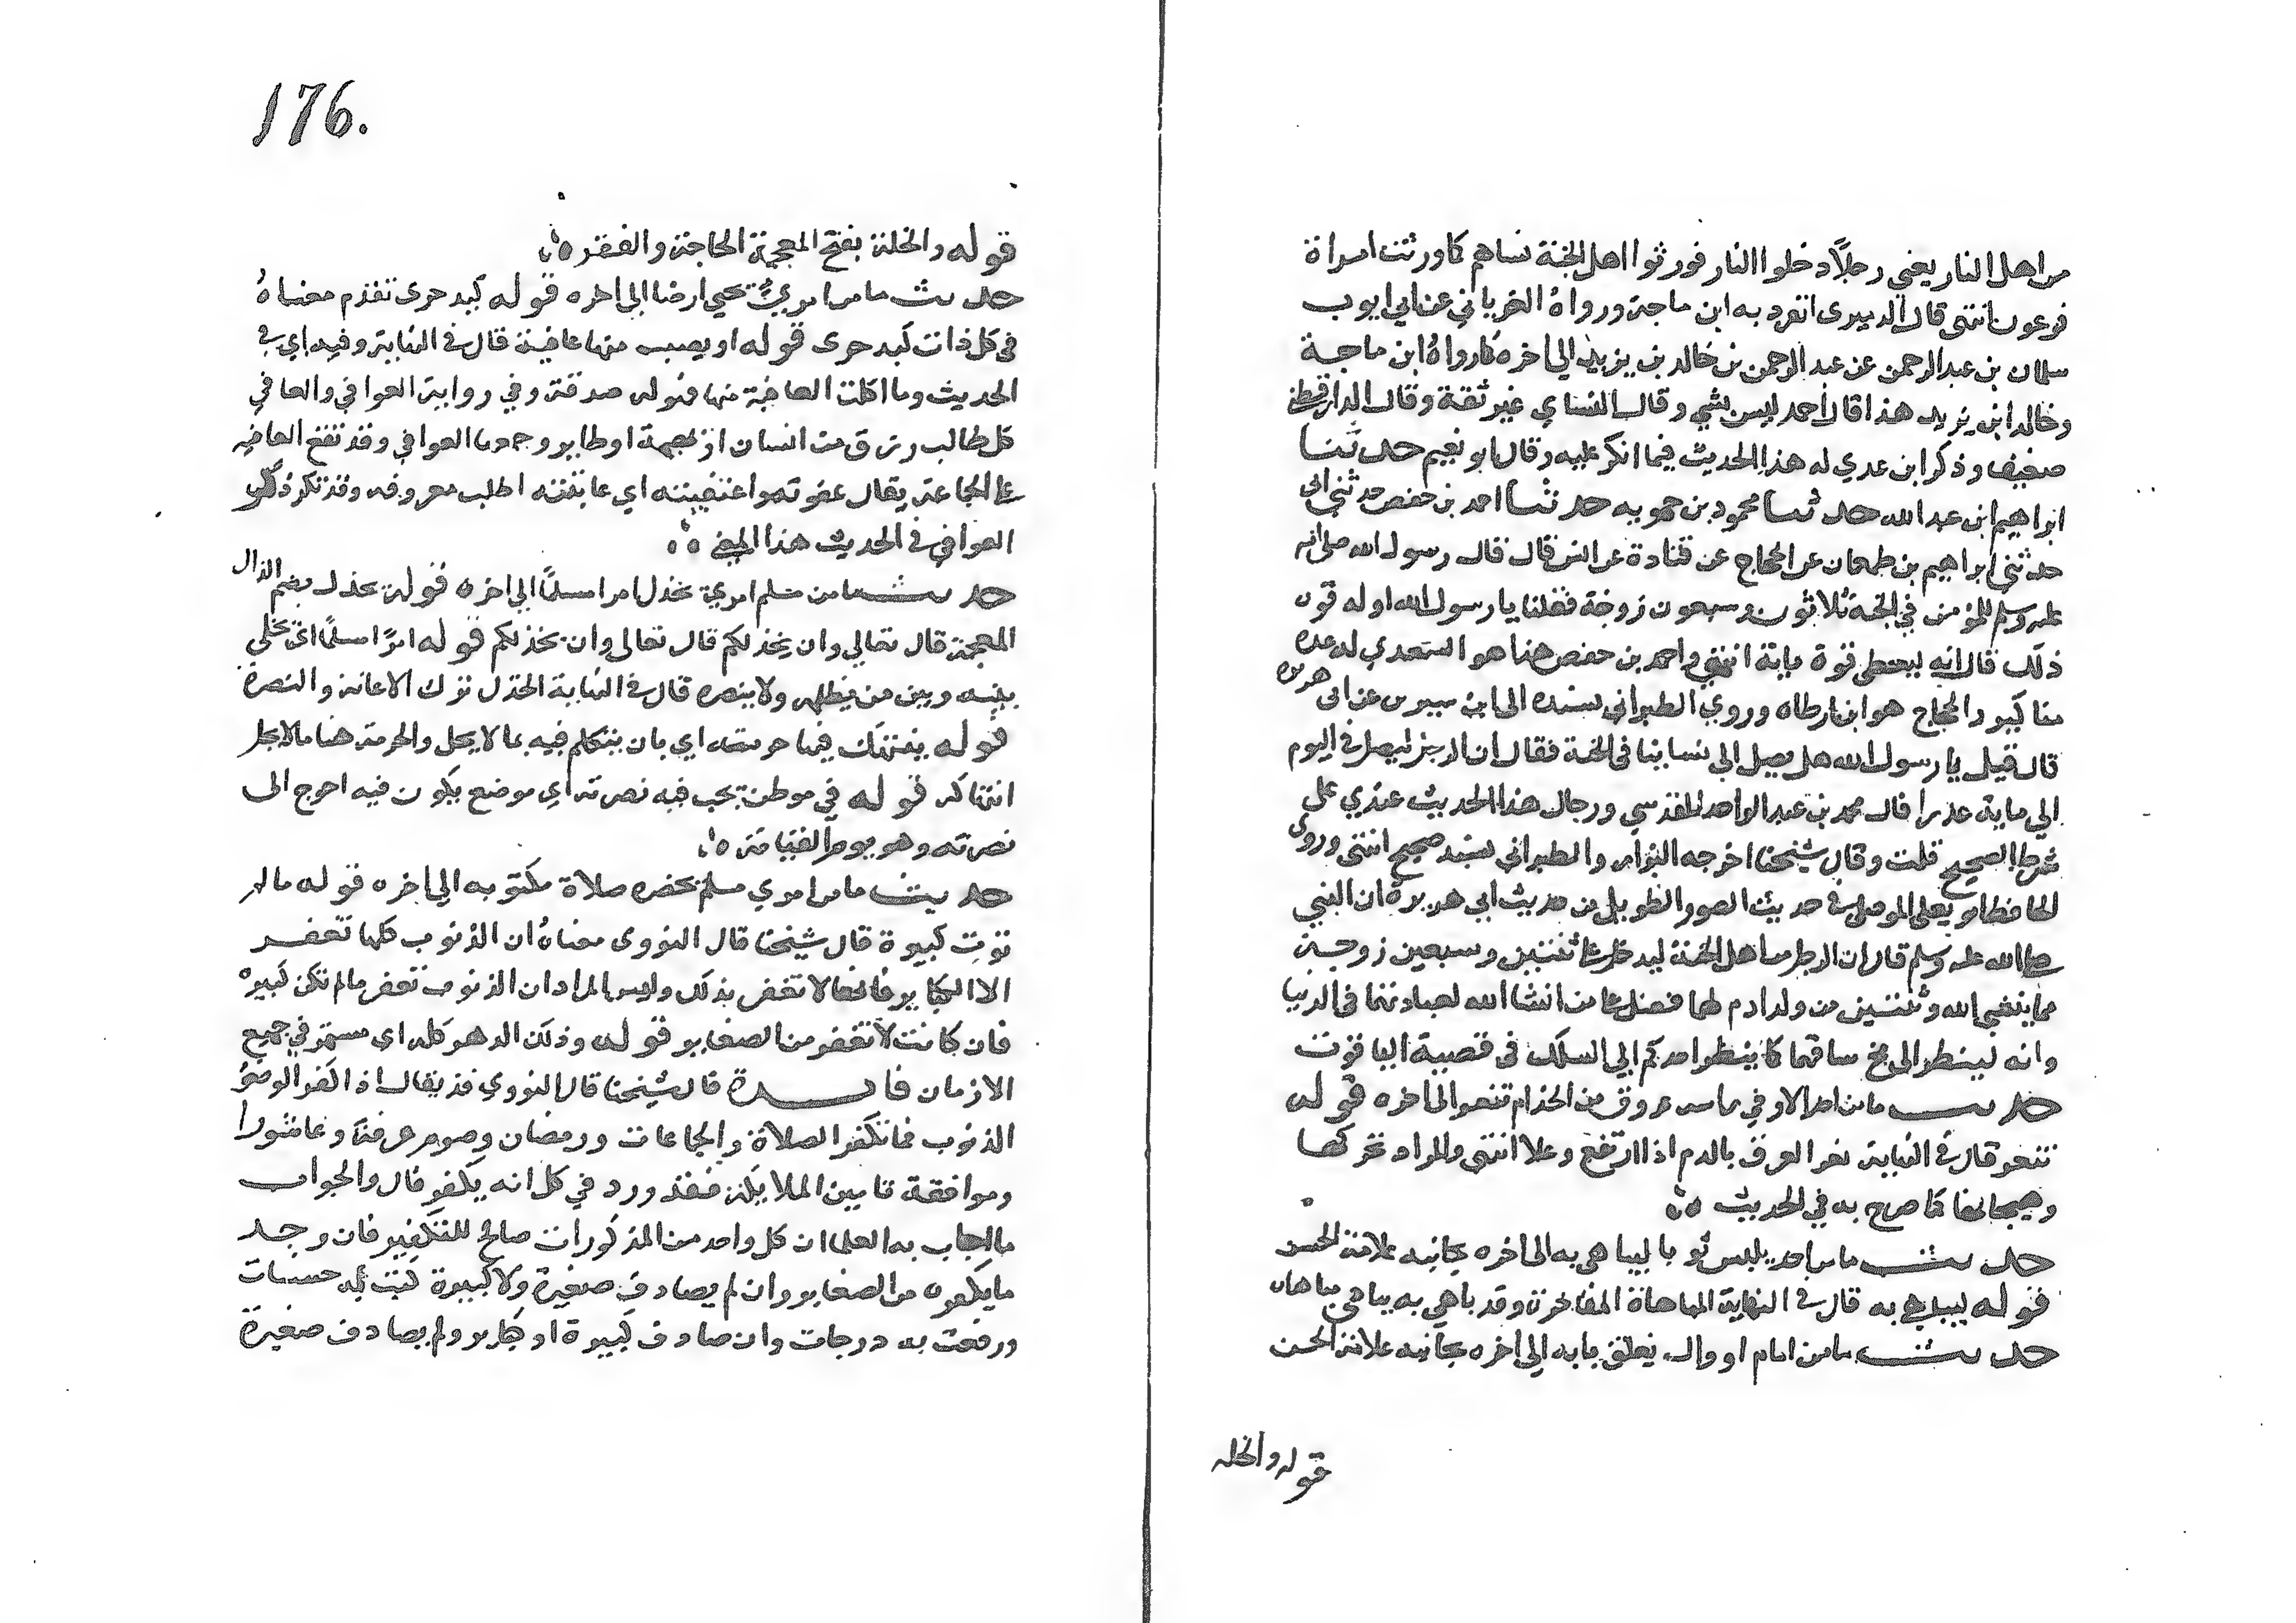 من اهل النار يعني رجلاً دخلوا النار فورثوا اهل الجنة نساهم كما ورثت امراة
فرعون انتهى قال الدميرى انفرد به ابن ماجة ورواه الفرياني عن ابي ايوب
سليمان بن عبد الرحمن عن عبد الرحمن بن خالد بن يزيد الي اخره كما رواه ابن ماجة
وخالد ابن يزيد هذا قال احمد ليس بشي وقال النساي غير ثقة وقال الدارقطني
ضعيف وذكر ابن عدي له هذا الحديث فيما انكر عليه وقال ابو نعيم حدثنا
ابراهيم ابن عبد الله حدثنا محمود بن حمويه حدثنا احمد بن حفص حدثني ابي
حدثني ابراهيم بن طهمان عن الحجاج عن قتادة عن انس قال قال رسول الله صلى الله
عليه وسلم للمؤمن في الجنة ثلاثون وسبعون زوجة فقلنا يا رسول الله اوله قوة
ذلك قال انه ليعطى قوة ماية انتهي واحمد بن حفص هذا هو السعدي له عدة
مناكير والحجاج هو ابن ارطاه وروي الطبراني بسنده الى ابن سيرين عن ابى هريرة
قال قيل يا رسول الله هل يصل الي نساينا في الجنة فقال ان الرجل ليصل في اليوم
الي ماية عذرا قال محمد بن عبد الواحد المقدسي ورجال هذا الحديث عندي على
شرط الصحيح قلت وقال شيخنا اخرجه البزار والطبراني بسند صحيح انتهى وروى
الحافظ ابو يعلى الموصلي في حديث الصور الطويل من حديث ابي هريرة ان النبي
صلى الله عليه وسلم قال ان الرجل من اهل الجنة ليدخل على ثنتين وسبعين زوجة
مما ينشي الله وثنتين من ولد ادم لهما فضل على من انشا الله لعبادتهما في الدنيا
وانه لينظر الى مخ ساقهما كما ينظر احدكم الي السلك في قصبة الياقوت
حديث ما من احد الا وفي راسه عروق من الجذام تنعر الى اخره قوله
تنعر قال في النهاية نعر العرق بالدم اذا ارتفع وعلا انتهى والمراد تحركها
وهيجانها كما صرح به في الحديث ه
حديث ما من احد يلبس ثوبا ليباهى به الى اخره بجانبه علامة الحسن
قوله ليباهي به قال في النهاية المباهاة المفاخرة وقد باهي به يباهي مباهاه
حديث ما من امام او وال يغلق بابه الي اخره بجانبه علامة الحسن
قوله والخله
176.
قوله والخلة بفتح المعجمة الحاجة والفقر ه
حديث ما من امريٍ يحيي ارضا الى اخره قوله كبد حرى تقدم معناهُ
في كل ذات كبد حرى قوله او يصيب منها عافية قال في النهاية وفيه اي في
الحديث وما اكلت العافية منها فهو له صدقة وفي رواية العوافي والعافي
كل طالب رزق من انسان او بهيمة او طاير وجمعها العوافي وقد تقع العافيه
على الجماعة يقال عفوته واعتفيته اي عا تيته اطلب معروفه وقد تكرر ذكر
العوافي في الحديث هذا المعني ه
حديث ما من مسلم امري يخذل امرا مسلمًا الي اخره قوله يخذل بضم الذال
المعجمة قال تعالي وان يخذلكم قال تعالى وان يخذلكم قوله امرًا مسلمًا اي يخلي
بينه وبين من يظلمه ولا ينصره قال في النهاية الخذل ترك الاعانة والنصرة
قوله ينتهك فيها حرمته اي بان يتكلم فيه بما لا يحل والحرمة هنا ما لا يحل
انتهاكه قوله في موطن يجب فيه نصرته اي موضع يكون فيه احوج الى
نصرته وهو يوم القيامة ه
حديث ما من امري مسلم تحضره صلاة مكتوبه الي اخره قوله ما لم
توت كبيرة قال شيخنا قال النووى معناهُ ان الذنوب كلها تغفر
الا الكباير فانها لا تغفر بذلك وليس المراد ان الذنوب تغفر ما لم تكن كبيره
فان كانت لا تغفر من الصغاير قوله وذلك الدهر كله اى مستمر في جميع
الازمان فايدة قال شيخنا قال النووي قد يقال اذا كفر الوضو
الذنوب فما تكفر الصلاة والجماعات ورمضان وصوم عرفة وعاشورا
وموافقة تامين الملايكة فقد ورد في كل انه يكفر قال والجواب
ما اجاب به العلما ان كل واحد من المذكورات صالح للتكفير فان وجد
ما يكفره من الصغاير وان لم يصادف صغيرة ولا كبيرة كتبت به حسنات
ورفعت به درجات وان صادف كبيرة او كباير ولم يصادف صغيرة